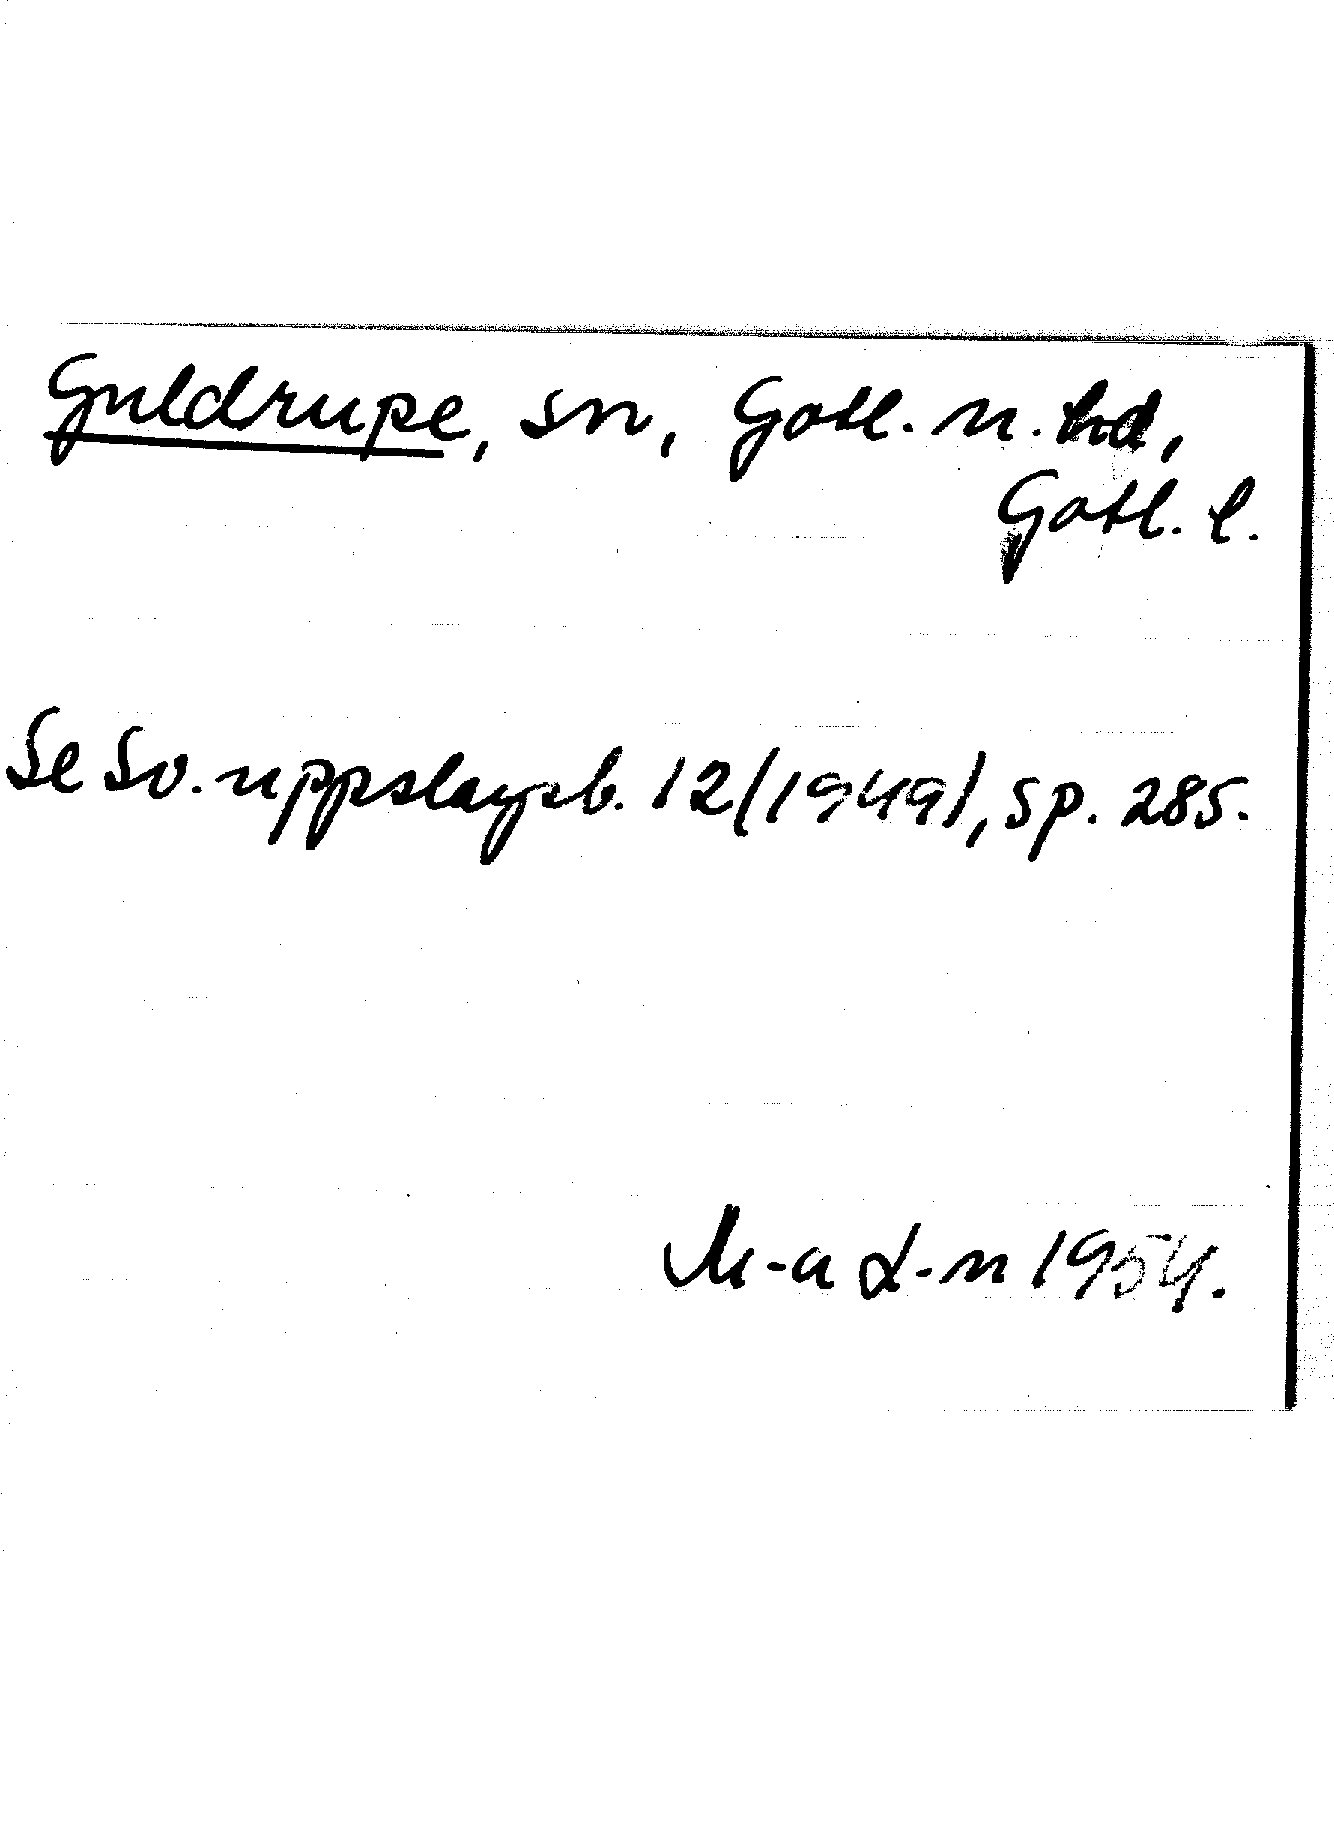 Guldrupe, sn, Gotl. n. hd,
Gotl. l.
Se Sv. uppslagsb. 12(1949), sp. 285.
M-a L-n 1954.